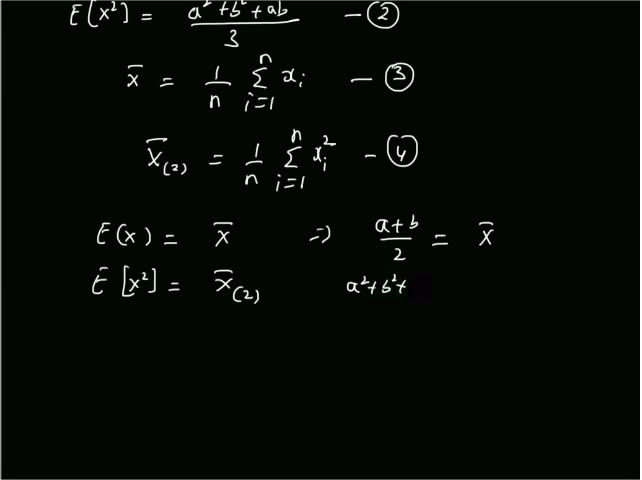 E[x²] = a²+b²+ab / 3 — ②
x̄ = 1/n Σ_{i=1}^{n} xᵢ — ③
x̄₍₂₎ = 1/n Σ_{i=1}^{n} xᵢ² — ④
E(x) = x̄ ⇒ a+b / 2 = x̄
E[x²] = x̄₍₂₎ a²+b²+